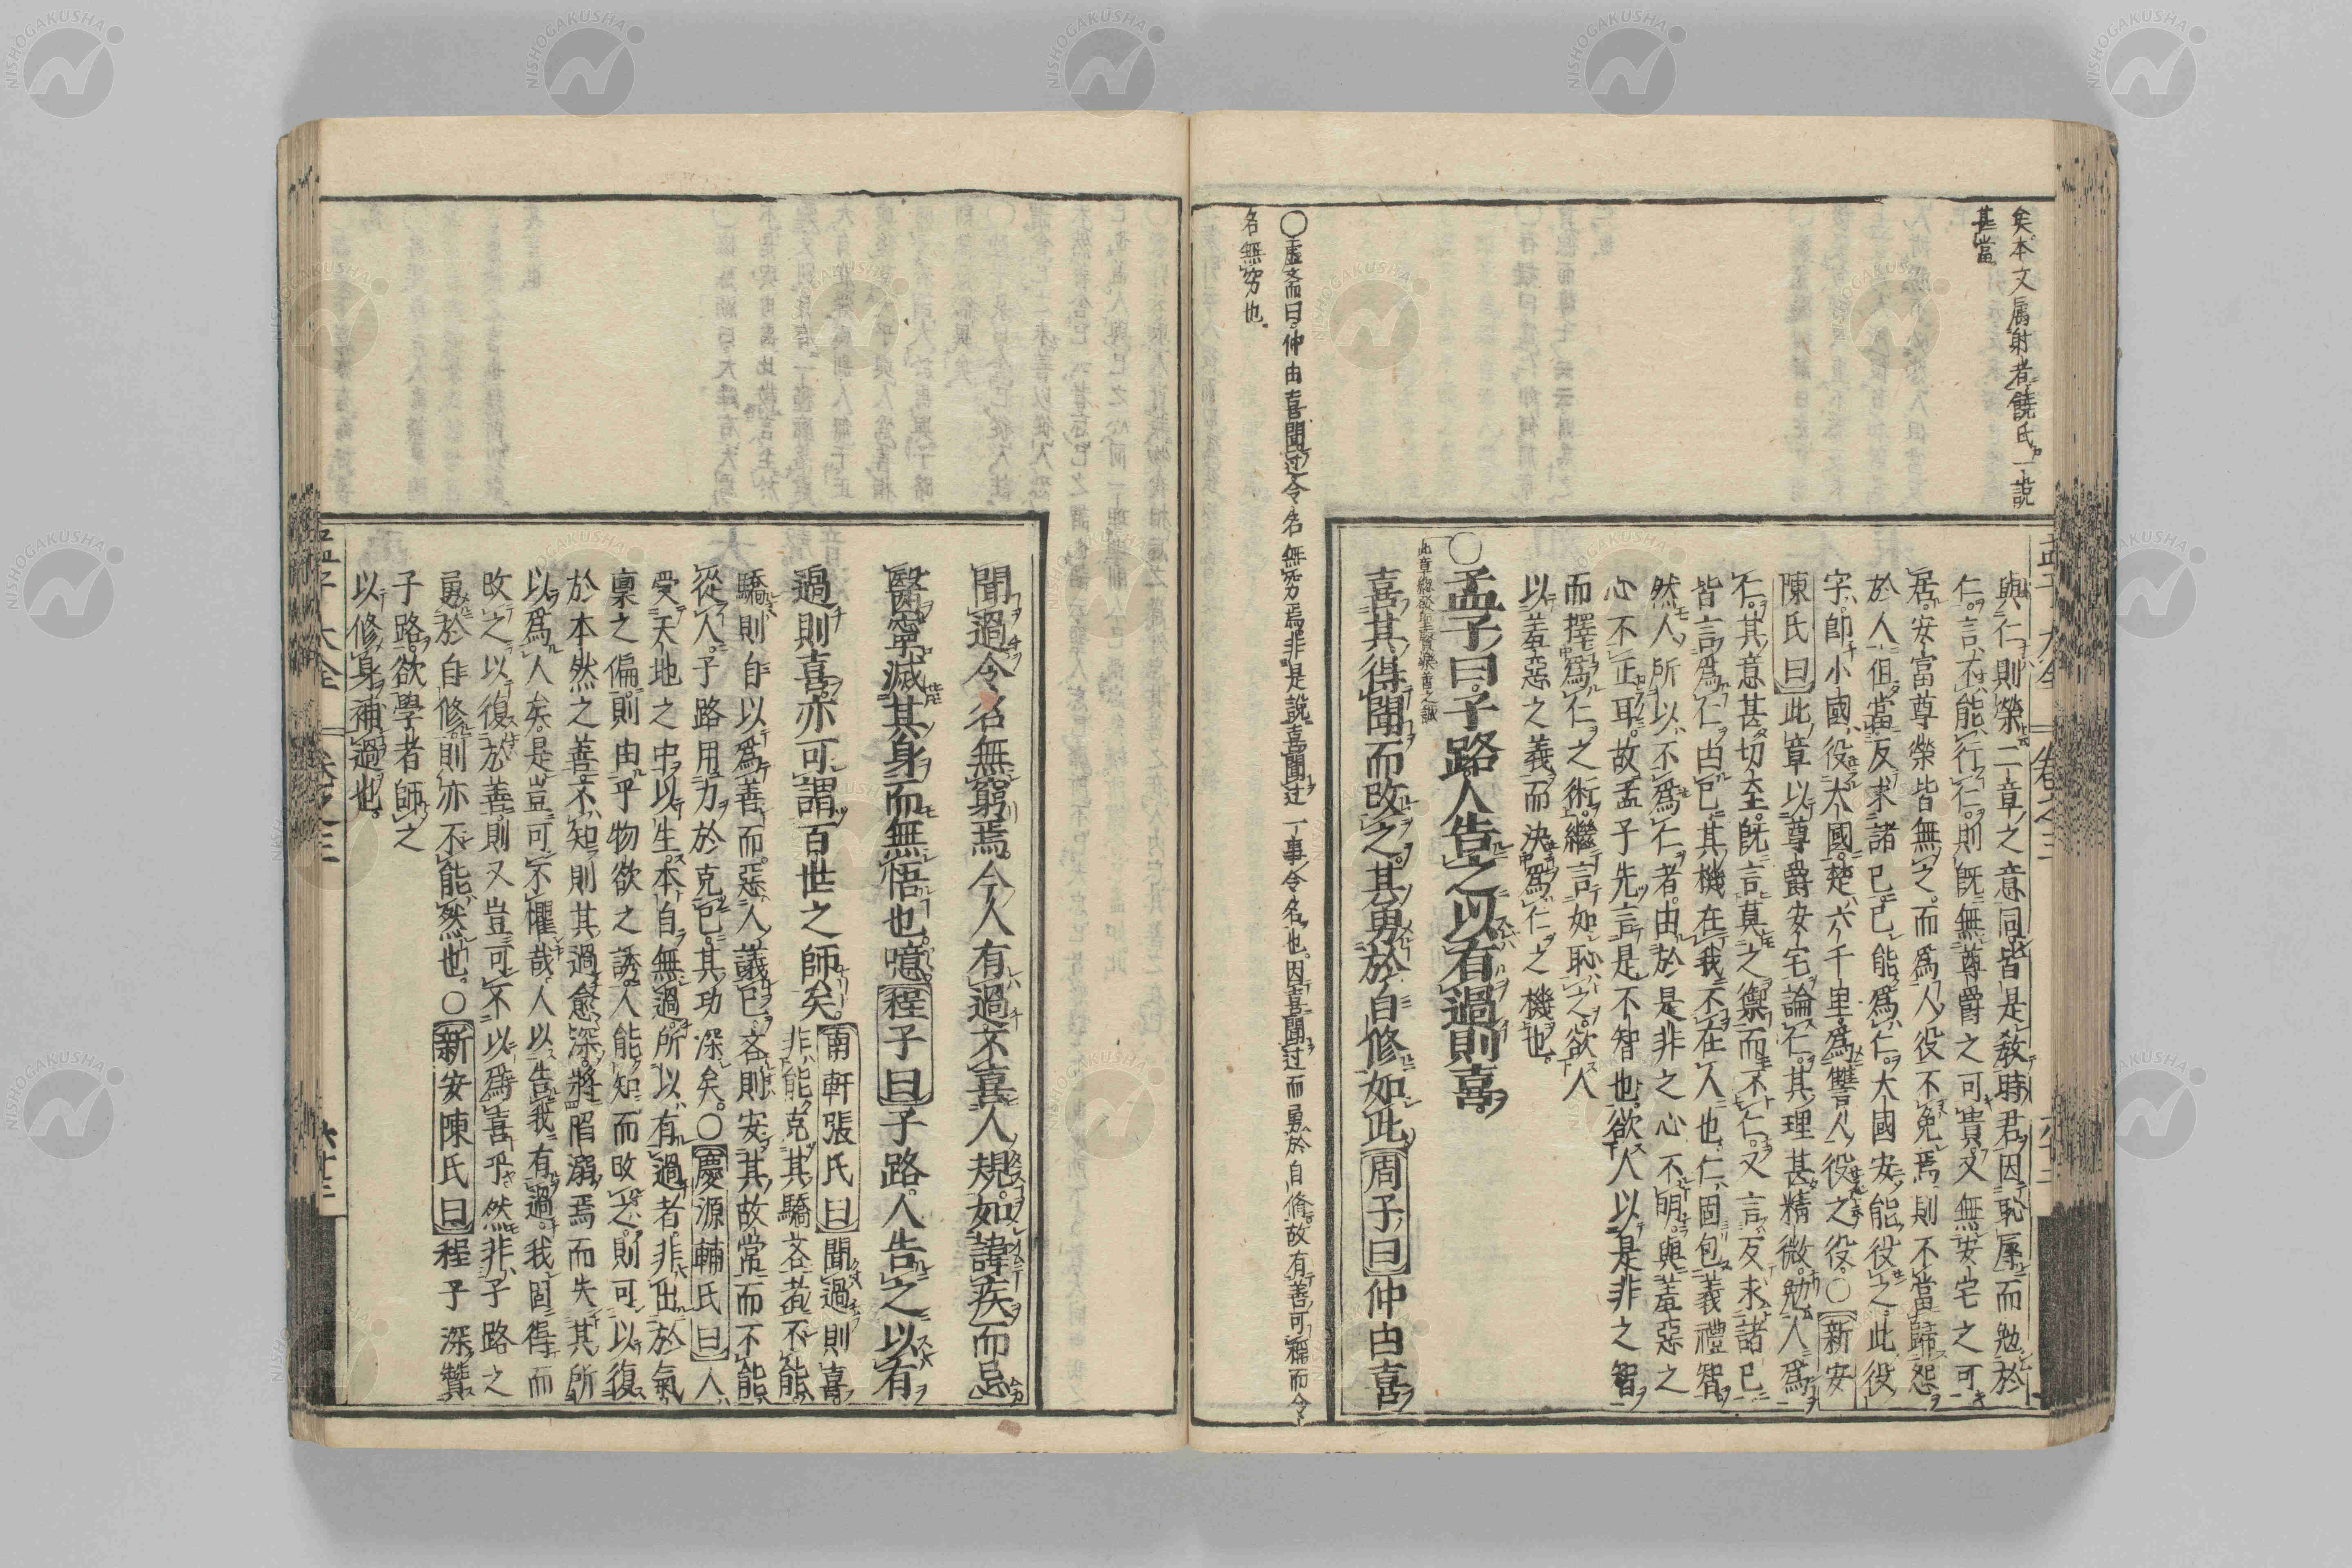 矣本文属射者饒氏一説
甚當
○虚斎曰仲由喜聞过令名無穷焉非是說喜聞过一事令名也因喜聞过而勇於自脩故有善可稱而令
名無穷也
與仁則榮二章之意同皆是教時君因恥辱而勉於
仁言不能行仁則既無尊爵之可貴又無安宅之可
居安富尊榮皆無之而爲人役不免焉則不當歸怨
於人但當反求諸己己能爲仁大國安能役之此役
字師小國役大國楚六千里爲讐人役之役○新安
陳氏曰此章以尊爵安宅論仁其理甚精微勉人爲
仁其意甚切至既言莫之禦而不仁又言反求諸已
皆言爲仁由已其機在我不在人也仁固包義禮智
然人所以不爲仁者由於是非之心不明與羞惡之
心不正耳故孟子先言是不智也欲人以是非之智
而擇爲仁之術繼言如恥之欲人
以羞惡之義而決爲仁之機也
○孟子曰子路人告之以有過則喜
喜其得聞而改之其勇於自修如此周子曰仲由喜
聞過令名無窮焉今人有過不喜人規如諱疾而忌
醫寧滅其身而無悟也噫程子曰子路人告之以有
過則喜亦可謂百世之師矣南軒張氏曰聞過則喜
非能克其驕吝者不能
驕則自以爲善而惡人議已吝則安其故常而不能
從人子路用力於克已其功深矣○慶源輔氏曰人
受天地之中以生本自無過所以有過者非出於氣
稟之偏則由乎物欲之誘人能知而改之則可以復
於本然之善不知則其過愈深將陷溺焉而失其所
以爲人矣是豈可不懼哉人以告我有過我固得而
改之以復於善則又豈可不以爲喜乎然非子路之
勇於自修則亦不能然也○新安陳氏曰程子深贊
子路欲學者師之
以修身補過也